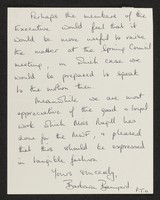 Perhaps the members of the
Executive would feel that it
would be more useful to raise
the matter at the Spring Council
meeting, in which case we
would be prepared to speak
to the motion then.
Meanwhile we are most
appreciative of the good & loyal
work which Miss
done for the &, & pleased
that this should be expressed
in tangible fashion.
Yours sincerely,
Barbara
P.T.O